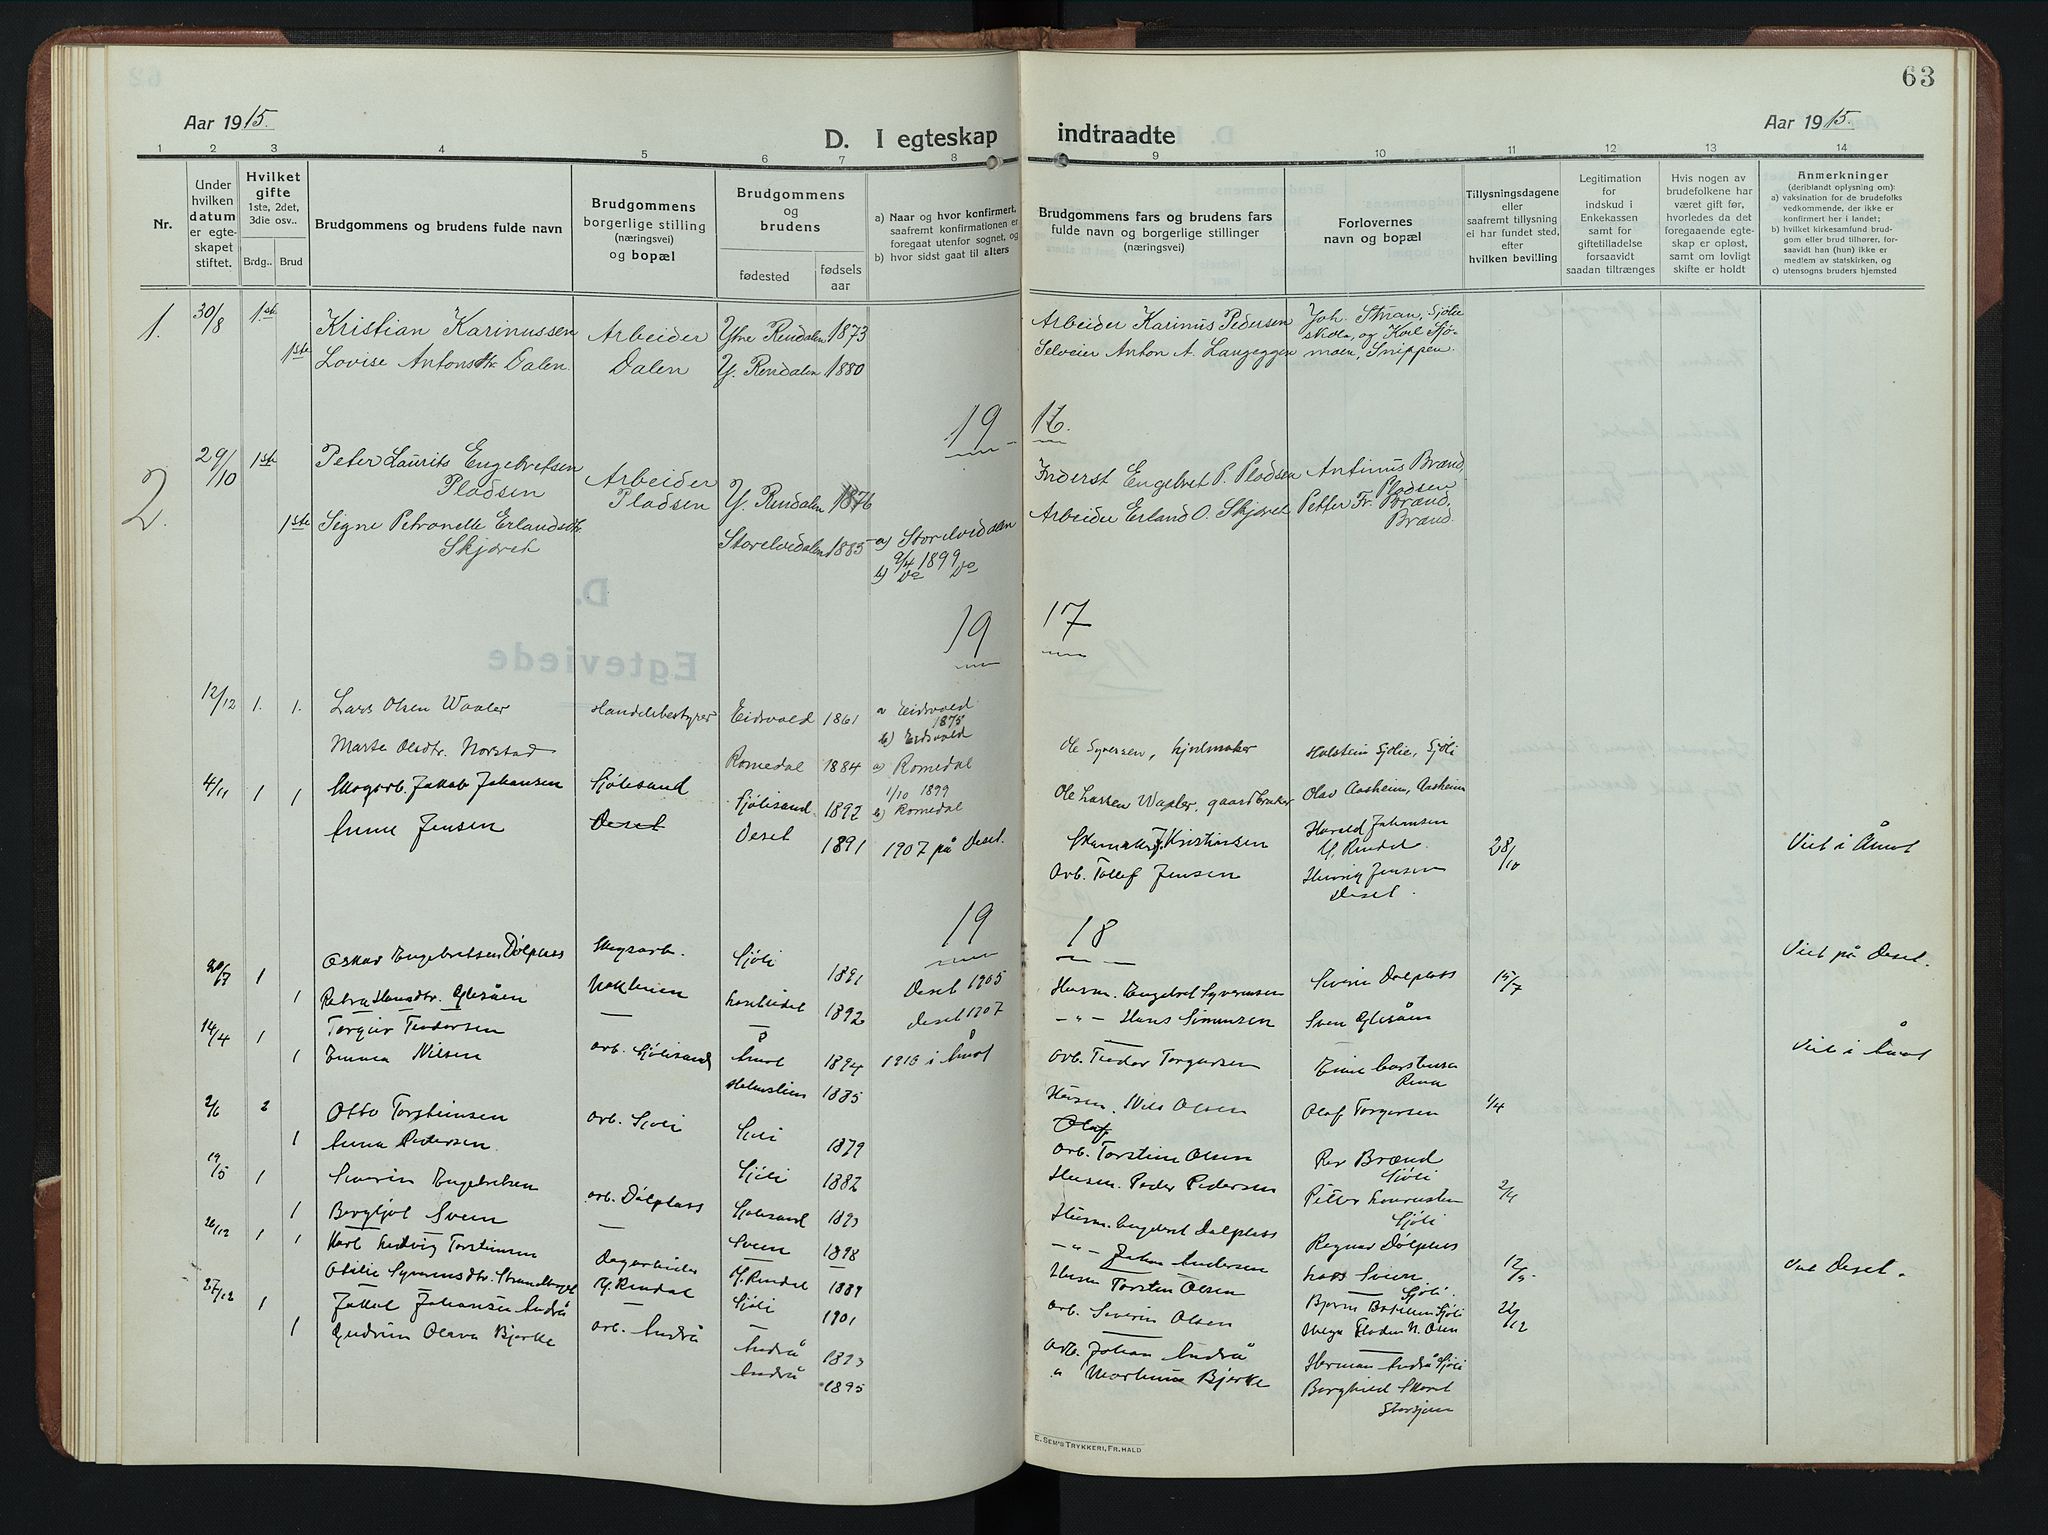 63
Aar 1915.
D. I egteskap indtraadte
Aar 1915.
1 2 3 4 5 6 7 8 9 10 11 12 13 14
Nr.
Under hvilken datum er egteskapet stiftet.
Hvilket gifte 1ste, 2det, 3die osv..
Brdg.. Brud
Brudgommens og brudens fulde navn
Brudgommens borgerlige stilling (næringsvei) og bopæl
Brudgommens og brudens
fødested
fødsels aar
a) Naar og hvor konfirmert, saafremt konfirmationen er foregaat utenfor sognet, og
b) hvor sidst gaat til alters
Brudgommens fars og brudens fars fulde navn og borgerlige stillinger (næringsvei)
Forlovernes navn og bopæl
Tillysningsdagene eller saafremt tillysning ei har fundet sted, efter hvilken bevilling
Legitimation for indskud i Enkekassen samt for giftetilladelse forsaavidt saadan tiltrænges
Hvis nogen av brudefolkene har været gift før, hvorledes da det foregaaende egteskap er opløst, samt om lovligt skifte er holdt
Anmerkninger
(deriblandt oplysning om):
a) vaksination for de brudefolks vedkommende, der ikke er konfirmert her i landet;
b) hvilket kirkesamfund brudgom eller brud tilhører, forsaavidt han (hun) ikke er medlem av statskirken, og
c) utensogns bruders hjemsted
1. 30/8 1ste Kristian Karinussen Arbeider Ytre Rendalen 1873 Arbeider Karinus Pedersen Joh. Strian, Sjøli
skole, og Karl Sjø-
1ste Lovise Antonsdtr. Dalen Dalen Y. Rendalen 1880 Selveier Anton A. Langeggen moen, Snippen.
19 16.
2. 29/10 1ste Peter Laurits Engebretsen Arbeider Inderst Engebret P. Pladsen Antinus Brænd,
Pladsen Pladsen Y. Rendalen 1876 Pladsen
1ste Signe Petronelle Erlandsdtr. Arbeider Erland O. Skjøret Petter Fr. Brænd,
Skjøret Storelvedalen 1885 a) Storelvedalen Brænd.
9/4 1899
b) do do
19 17
12/12 1. 1. Lars Olsen Waaler Handelsbestyrer Eidsvold 1861 a Eidsvold
1875
b) Eidsvold
Marte Olsdtr. Norstad Romedal 1884 a) Romedal Ole Syversen, hjulmaker Halstein Sjølie, Sjøli
1/10 1899
b) Romedal Ole Larsen Waaler, gaardbruker Olav Aasheim, Aasheim
4/11 1 1 Skogsarb. Jakob Johansen Sjølisand Sjølisand 1892 Skomaker J. Kristiansen Harald Johansen
Y. Rendal. 28/10 Viet i Åmot
Anne Jensen Deset Deset 1891 1907 på Deset. Arb. Tollef Jensen Henry Jensen
Deset.
19 18
20/7 1 Oskar Engebretsen Dølplass Skogsarb. Sjøli 1891 Deset 1905 Husm. Engebret Syvertsen Severin Dølplass 15/7 Viet på Deset.
1 Petra Hansdtr. Glesåen 1892 Deset 1907 -"- Hans Simensen Sven Glesåen
14/4 1 Torgier Teodorsen arb. Sjølisand Åmot 1894 1910 i Åmot arb. Teodor Torgersen Einar
Rena Viet i Åmot
1 Emma Nilsen 1885 Husm. Nils Olsen Olaf Torgersen 1/4
Olaf
2/6 2 Otto Torsteinsen arb. Sjøli Sjøli 1879 arb. Torstein Olsen Brænd
Sjøli
1 Anna Pedersen Sjøli 1882 Husm. Peder Pedersen Petter
Sjøli
19/5 1 Severin Engebretsen arb. Dølplass Sjølisand 1893 Husm. Engebret Dølplass Ragnar Dølplass
1 Bergljot Sveen Sveen 1898 -"- Johan Andersen Lars Sveen
Sjøli. 12/5 Viet Deset.
26/12 1 1 Karl Ludvig Torsteinsen Dagarbeider Y. Rendal 1889 Husm Torsten Olsen Bjarne Sjøli 22/12
Otilie Syverinsdtr. Strandberget Y. Rendal Sjøli 1901 arb. Severin Olsen Helga Floden N. Osen
27/12 1 Jakob Johansen Andrå arb. Andrå Andrå 1893 arb. Johan Andrå Herman Andrå Sjøli
1 Gudrun Olava Bjerke Andrå 1895 " Martinus Bjerke Borghild
Storsjøen
E. SEM'S TRYKKERI, FR.HALD